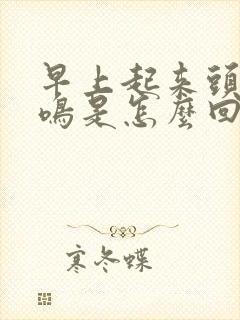 早上起来頭
鳴是怎麼回
寒冬蝶